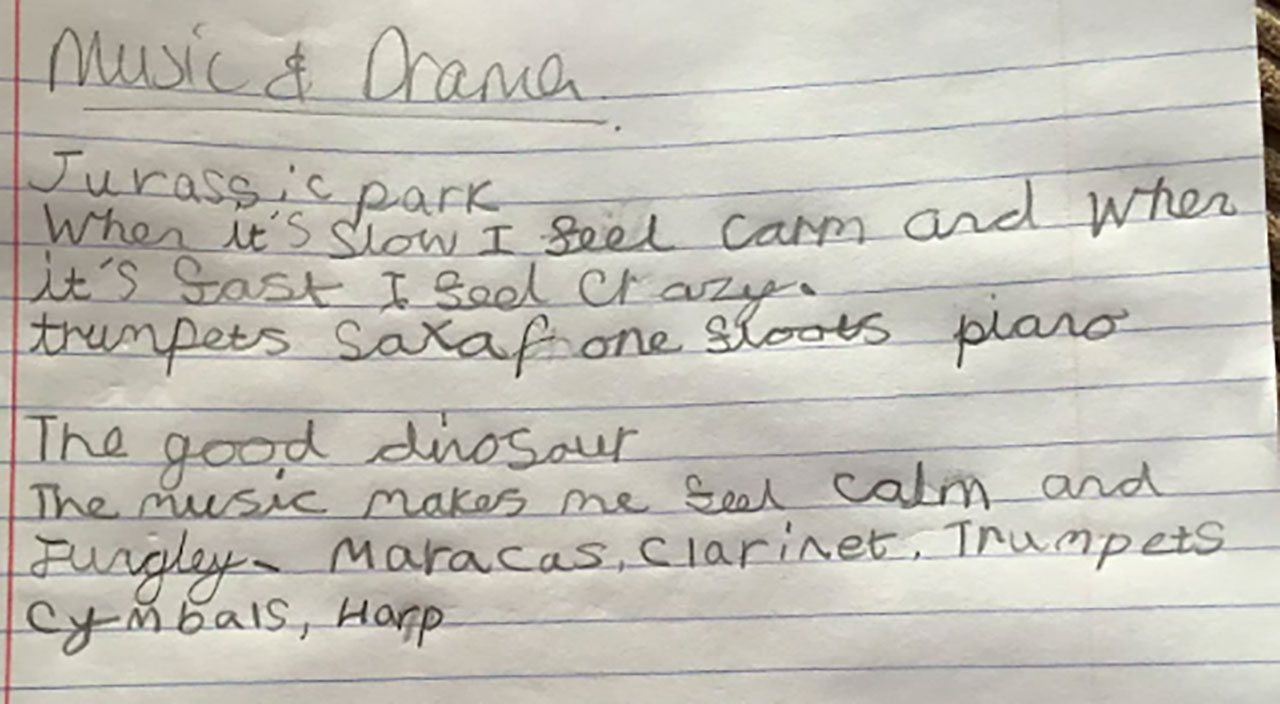 Music & Drama.
Jurassic park
When it's slow I feel carm and when
it's fast I feel crazy.
trumpets saxafone floots piano
The good dinosaur
The music makes me feel calm and
Jungley. Maracas, Clarinet, Trumpets
Cymbals, Harp